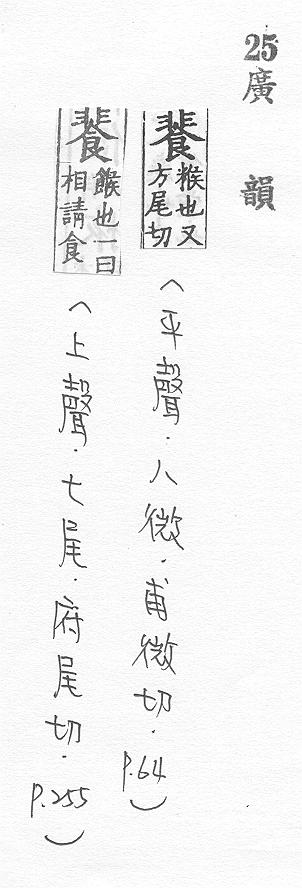 25廣韻
餥餱也又方尾切
〈平聲．八微．甫微切．P.64〉
餥餱也一曰相請食
〈上聲．七尾．府尾切．P.255〉